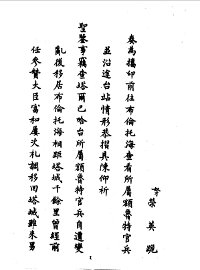 奴才榮英跪
奏為攜印前往布倫托海查看所屬額魯特官兵
並沿途台站情形恭摺具陳仰祈
聖鑒事竊查塔爾巴哈台所屬額魯特官兵自遭變
亂後移居布倫托海相距塔城千餘里曾經前
任參贊大臣富和屢次札調移回塔城雖來男